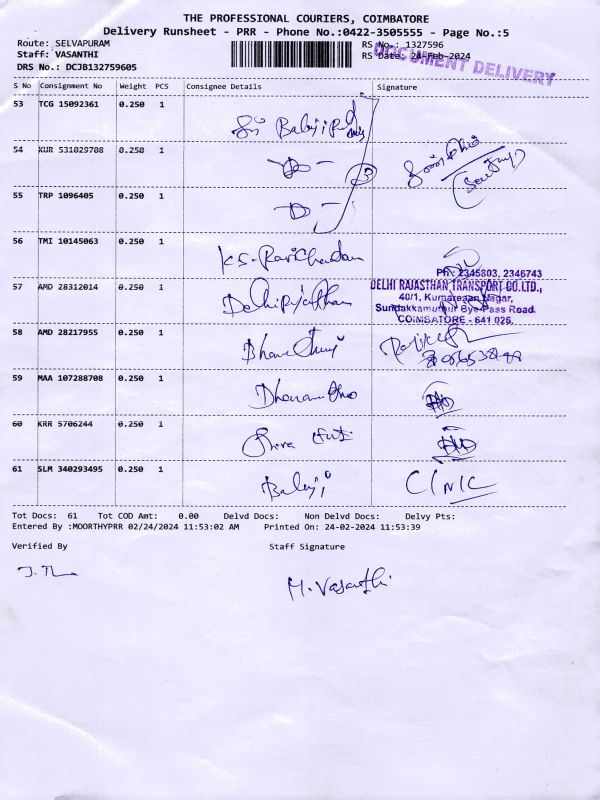 THE PROFESSIONAL COURIERS, COIMBATORE
Delivery Runsheet - PRR - Phone No.:0422-3505555 - Page No.:5
Route: SELVAPURAM
Staff: VASANTHI
DRS No.: DCJB132759605
RS No.: 1327596
RS Date: 24-Feb-2024
DOCUMENT DELIVERY
S No Consignment No Weight PCS Consignee Details Signature
53 TCG 15092361 0.250 1
Sri Balaji
54 KUR 531029708 0.250 1
55 TRP 1096405 0.250 1
56 TMI 10145063 0.250 1
K.S. Ravichandan
57 AMD 28312014 0.250 1
Ph: 2345803, 2346743
DELHI RAJASTHAN TRANSPORT CO.LTD.,
40/1, Kumaresan Nagar,
Sundakkamuthur Bye-Pass Road,
COIMBATORE - 641 026.
58 AMD 28217955 0.250 1
59 MAA 107288708 0.250 1
60 KRR 5706244 0.250 1
61 SLM 340293495 0.250 1
Balaji CLINIC
Tot Docs: 61 Tot COD Amt: 0.00 Delvd Docs: Non Delvd Docs: Delvy Pts:
Entered By :MOORTHYPRR 02/24/2024 11:53:02 AM Printed On: 24-02-2024 11:53:39
Verified By Staff Signature
M. Vasanthi